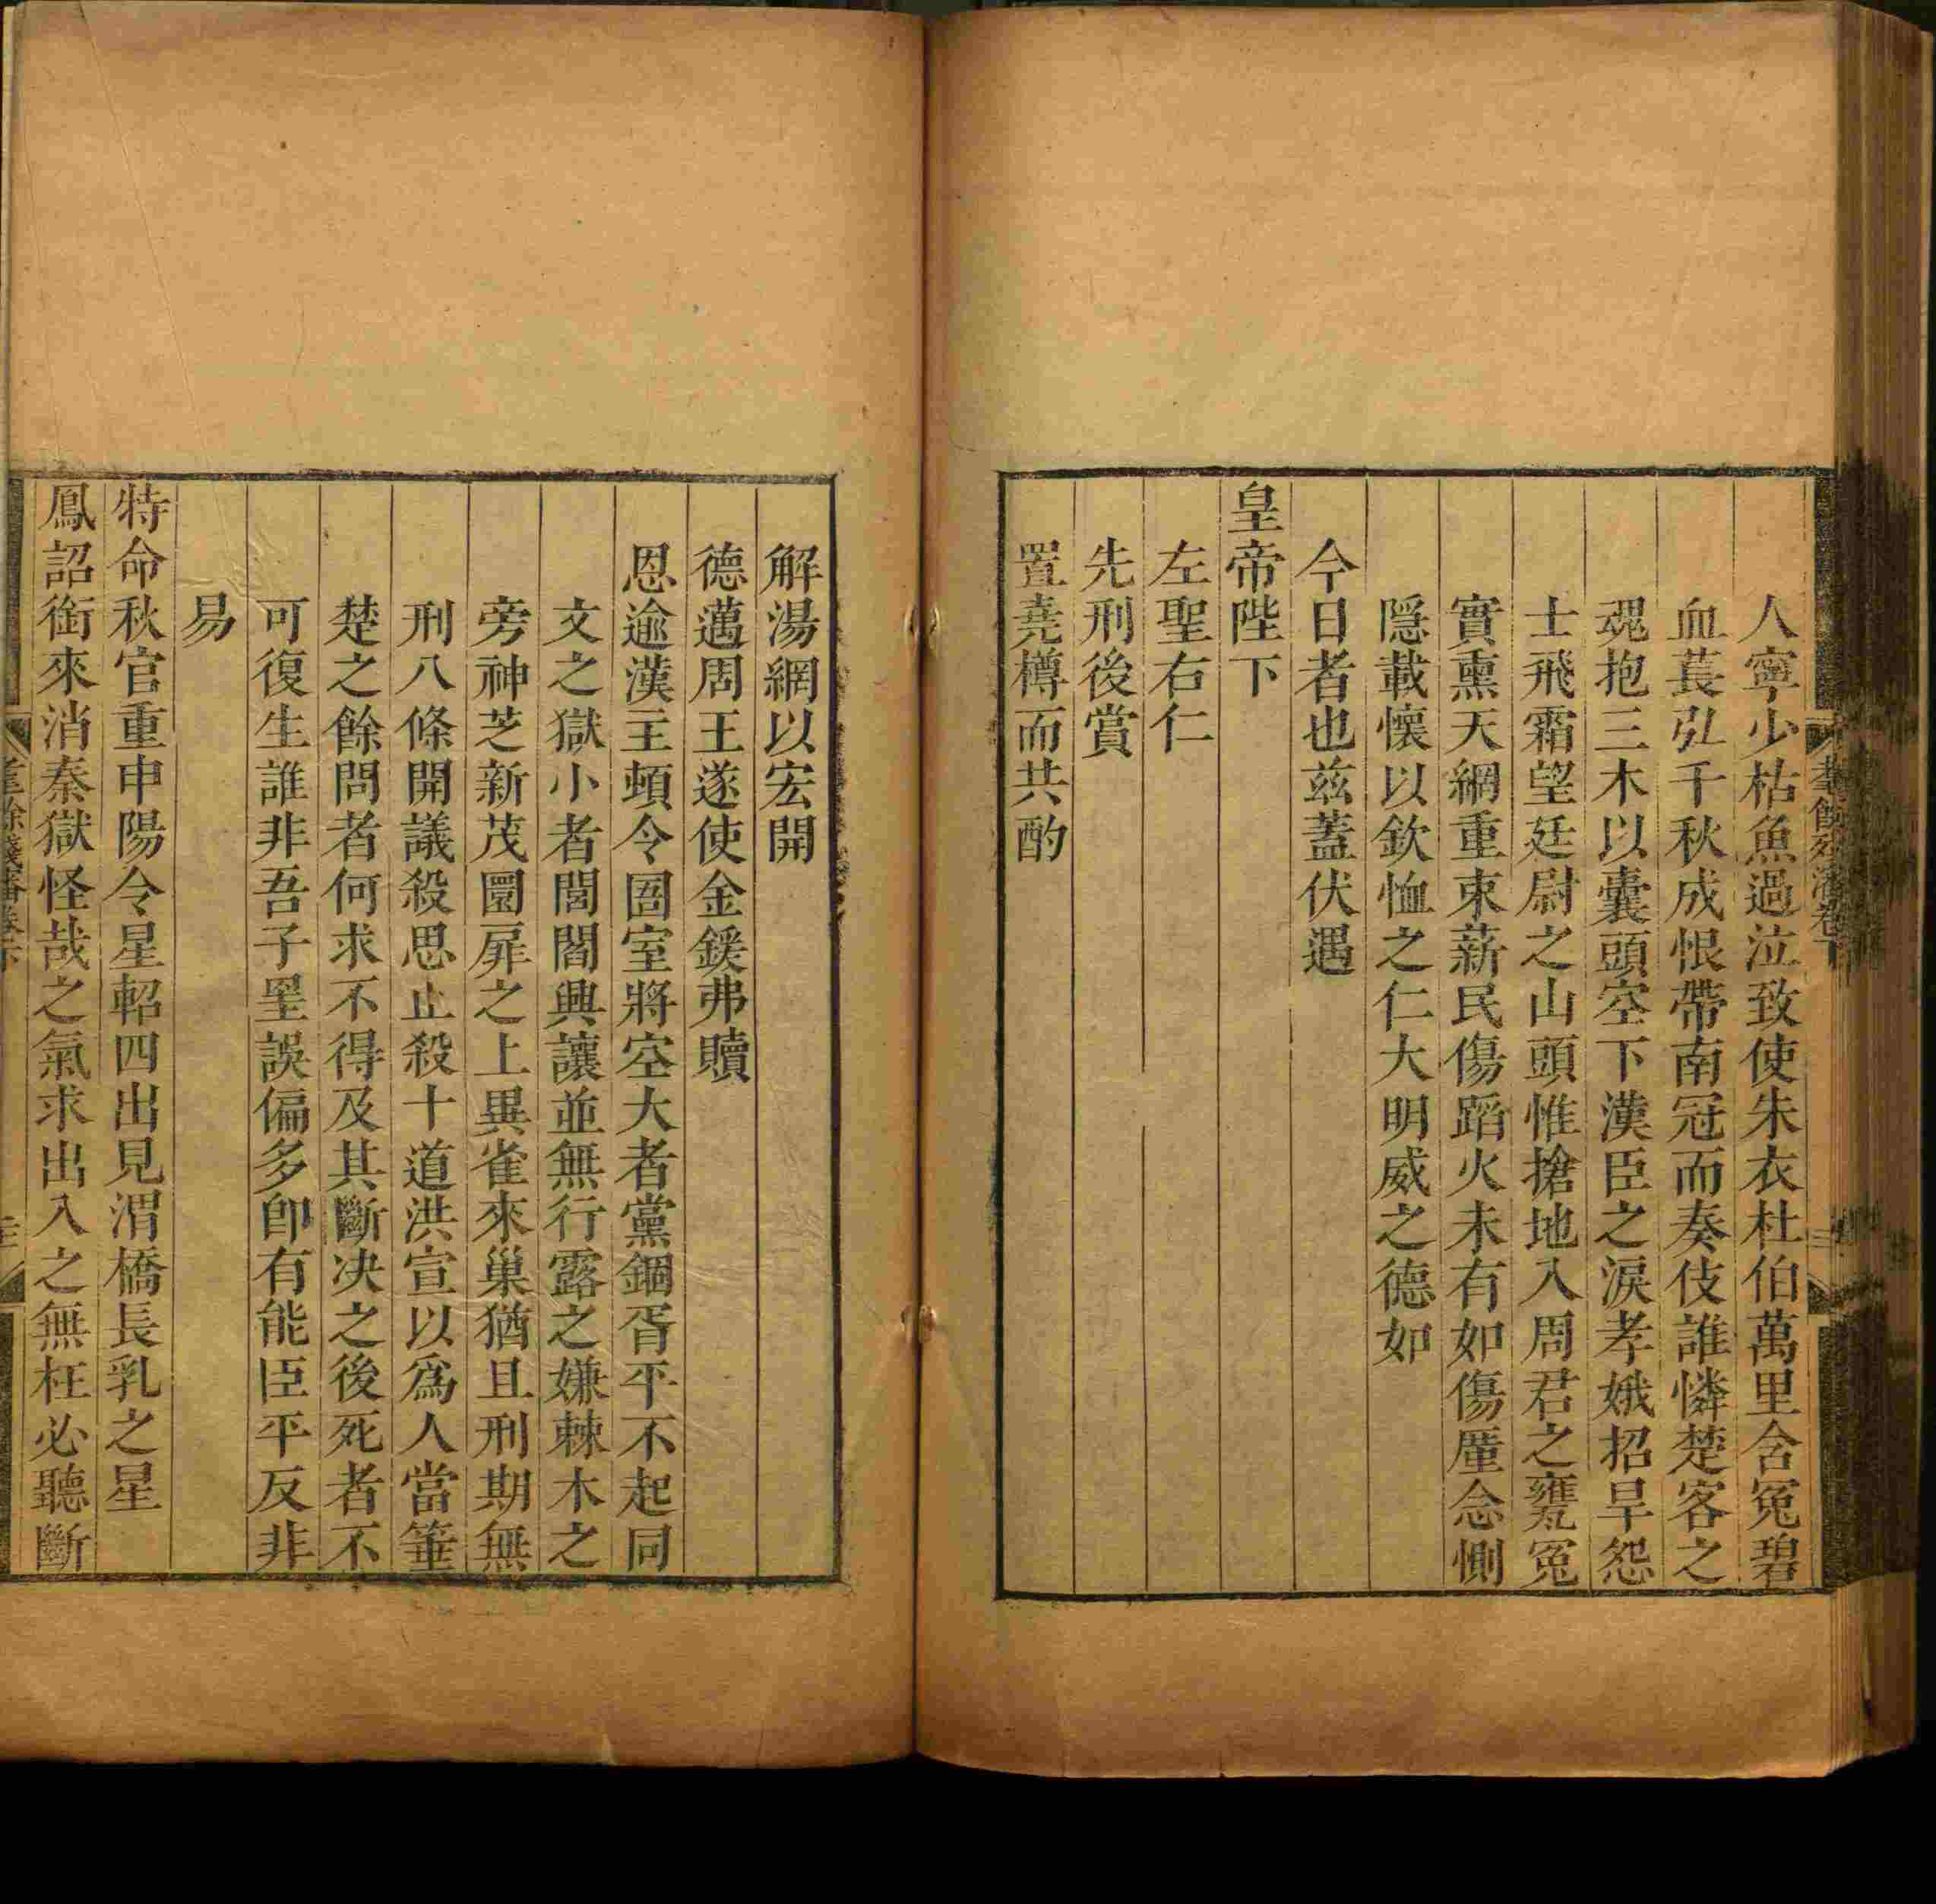 人寧少枯魚過泣致使朱衣杜伯萬里含冤碧
血萇弘千秋成恨帶南冠而奏伎誰憐楚客之
魂抱三木以囊頭空下漢臣之淚孝娥招旱怨
士飛霜望廷尉之山頭惟搶地入周君之甕冤
實熏天網重束薪民傷蹈火未有如傷厪念惻
隱載懷以欽恤之仁大明威之德如
今日者也茲蓋伏遇
皇帝陛下
左聖右仁
先刑後賞
置堯樽而共酌
解湯網以宏開
德邁周王遂使金鍰弗贖
恩逾漢主頓令圄室將空大者黨錮胥平不起同
文之獄小者閭閻興讓並無行露之嫌棘木之
旁神芝新茂圜扉之上異雀來巢猶且刑期無
刑八條開議殺思止殺十道洪宣以爲人當箠
楚之餘問者何求不得及其斷决之後死者不
可復生誰非吾子罣誤偏多卽有能臣平反非
易
特命秋官重申陽令星軺四出見渭橋長乳之星
鳳詔銜來消秦獄怪哉之氣求出入之無枉必聽斷